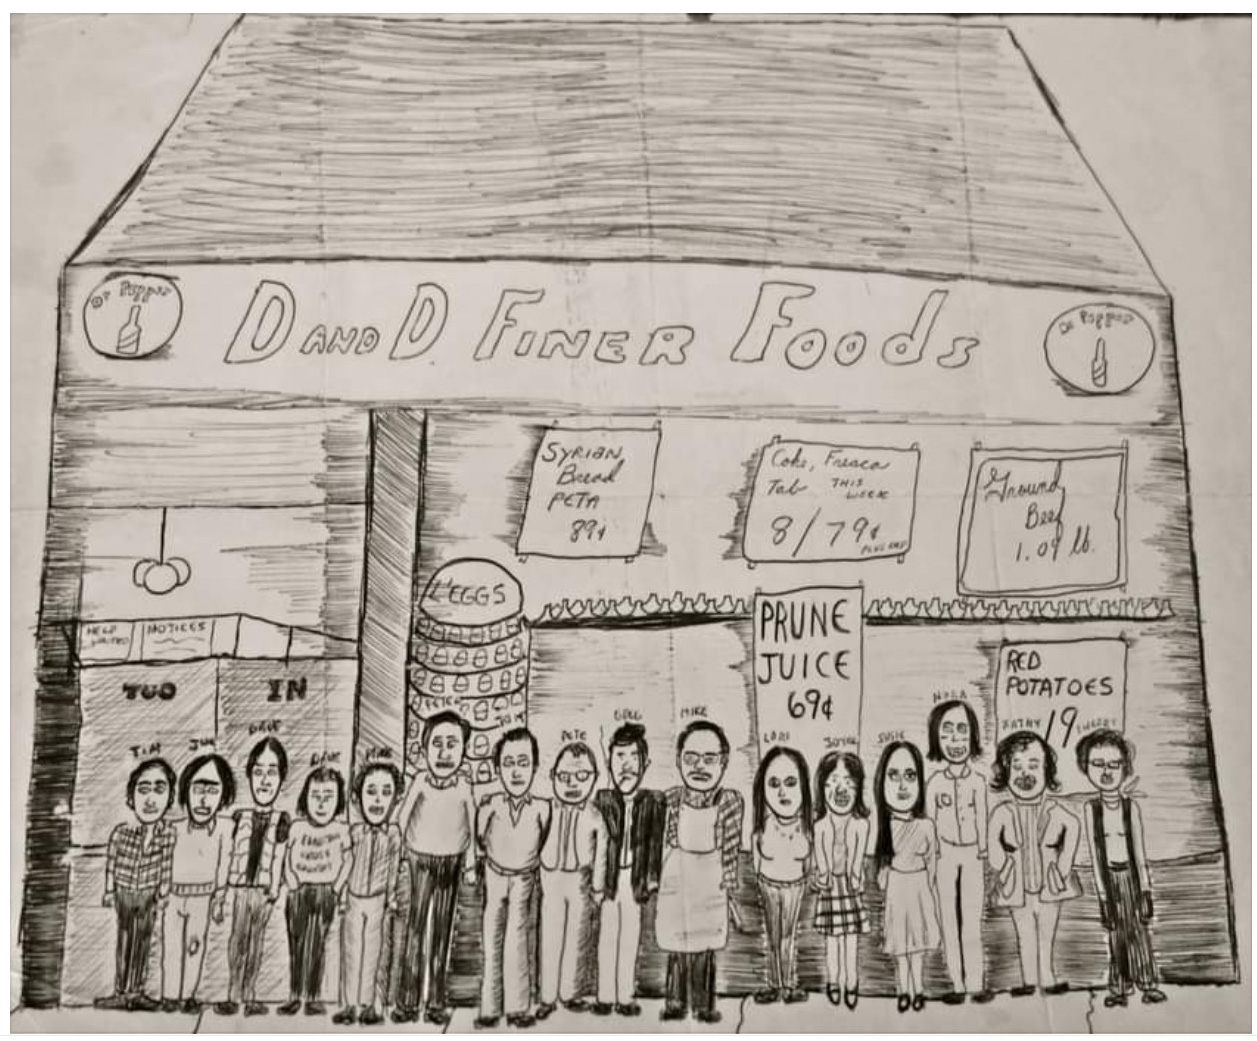 Dr Pepper
D AND D FINER FOODS
Dr Pepper
SYRIAN
Bread
PETA
89¢
Coke, Fresca
Tab THIS
WEEK
8/79¢
Ground
Beef
1.09 lb.
L'EGGS
HELP
WANTED
NOTICES
PRUNE
JUICE
69¢
RED
POTATOES
19
TUO
IN
TIM
JIM
DAVE
DAVE
MIKE
PETER
JOHN
PETE
GREG
MIKE
LORI
JOYCE
SUSIE
NORA
KATHY